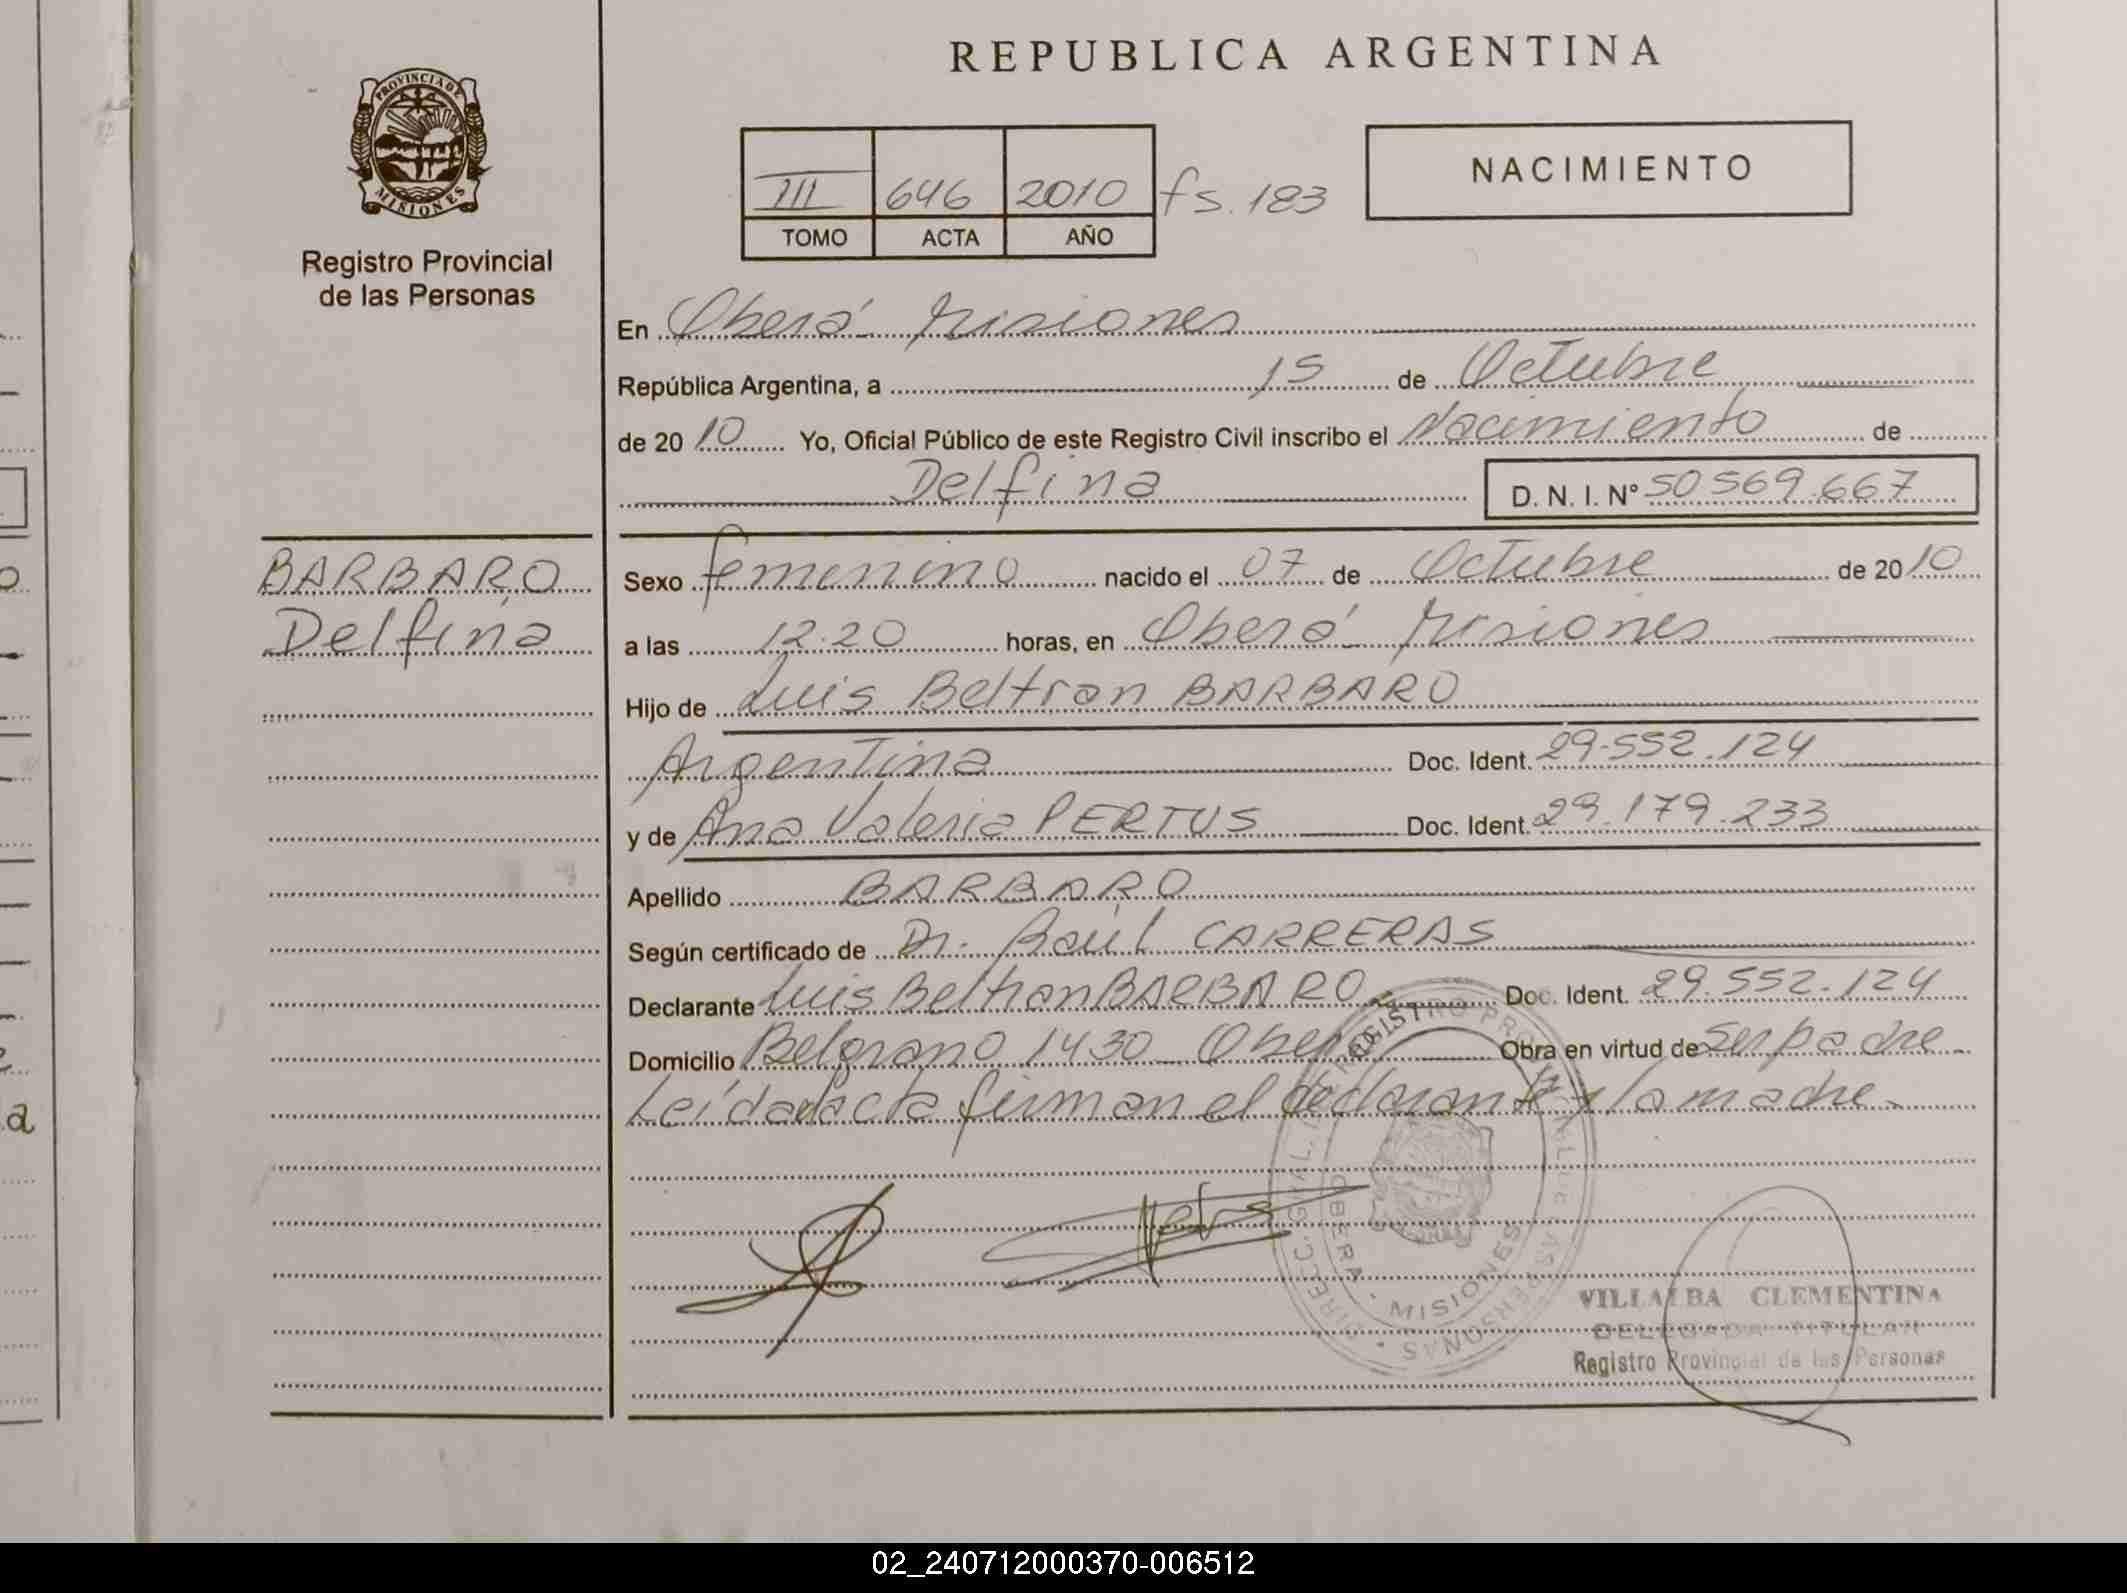 REPUBLICA ARGENTINA
PROVINCIA DE MISIONES
Registro Provincial
de las Personas
III 646 2010 fs. 183
TOMO ACTA AÑO
NACIMIENTO
En Oberá Misiones
República Argentina, a 15 de Octubre
de 2010 Yo, Oficial Público de este Registro Civil inscribo el Nacimiento de
Delfina D. N. I. N° 50569.667
BARBARO
Delfina
Sexo femenino nacido el 07 de Octubre de 2010
a las 12.20 horas, en Oberá Misiones
Hijo de Luis Beltran BARBARO
Argentina Doc. Ident. 29.552.124
y de Ana Valeria PERTUS Doc. Ident. 29.179.233
Apellido BARBARO
Según certificado de Dr. Raúl CARRERAS
Declarante Luis Beltran BARBARO Doc. Ident. 29.552.124
Domicilio Belgrano 1430 Oberá Obra en virtud de ser padre
Leída el acta firman el declarante y la madre
OBERA - MISIONES
VILLALBA CLEMENTINA
DELEGADA TITULAR
Registro Provincial de las Personas
02_240712000370-006512